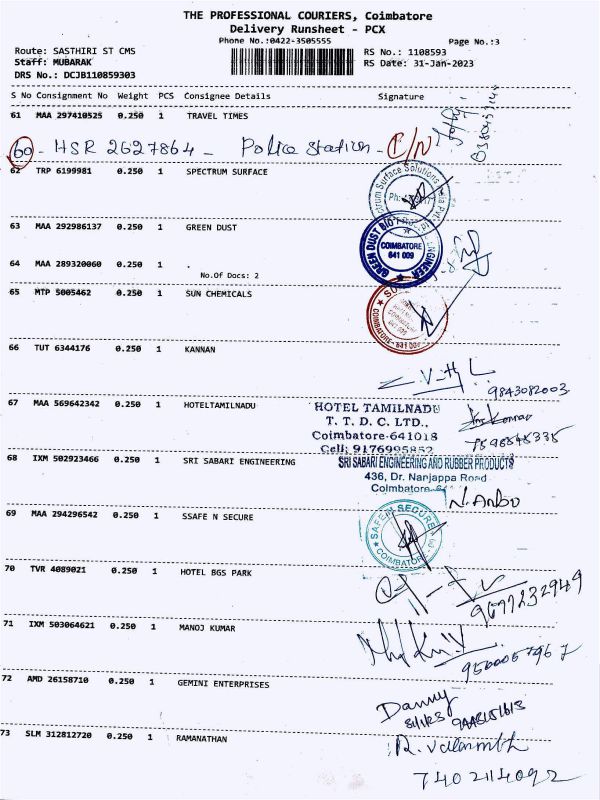 THE PROFESSIONAL COURIERS, Coimbatore
Delivery Runsheet - PCX
Phone No.:0422-3505555
Page No.:3
Route: SASTHIRI ST CMS
RS No.: 1108593
Staff: MUBARAK
RS Date: 31-Jan-2023
DRS No.: DCJB110859303
S No Consignment No Weight PCS Consignee Details Signature
61 MAA 297410525 0.250 1 TRAVEL TIMES
60 - HSR 2627864 - Police Station - C/N
62 TRP 6199981 0.250 1 SPECTRUM SURFACE
63 MAA 292986137 0.250 1 GREEN DUST
COIMBATORE
641 009
64 MAA 289320060 0.250 1 .
No.Of Docs: 2
65 MTP 5005462 0.250 1 SUN CHEMICALS
66 TUT 6344176 0.250 1 KANNAN
9843082003
67 MAA 569642342 0.250 1 HOTELTAMILNADU
HOTEL TAMILNADU
T. T. D. C. LTD.,
Coimbatore-641018
Cell: 9176995852
68 IXM 502923466 0.250 1 SRI SABARI ENGINEERING
SRI SABARI ENGINEERING AND RUBBER PRODUCTS
436, Dr. Nanjappa Road
Coimbatore
N. Anbu
69 MAA 294296542 0.250 1 SSAFE N SECURE
SAFE N SECURE
COIMBATORE
70 TVR 4089021 0.250 1 HOTEL BGS PARK
9697232949
71 IXM 503064621 0.250 1 MANOJ KUMAR
9500057967
72 AMD 26158710 0.250 1 GEMINI ENTERPRISES
Danny
73 SLM 312812720 0.250 1 RAMANATHAN
7402114092